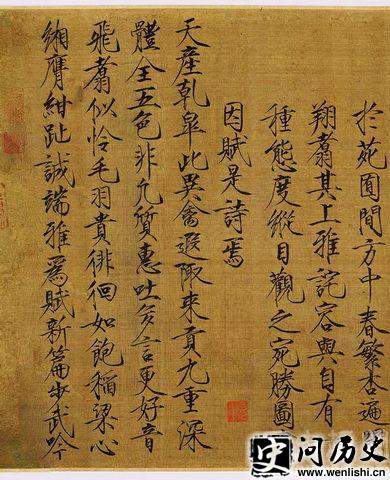 於苑囿間方中春繁杏遍
翔翥其上雅詫容與自有
種態度縱目觀之宛勝圖
因賦是詩焉
天產乾皋此異禽遐陬來貢九重深
體全五色非凡質惠吐多言更好音
飛翥似怜毛羽貴徘徊如飽稻粱心
緗膺紺趾誠端雅為賦新篇步武吟
问历史
www.wenlishi.cn